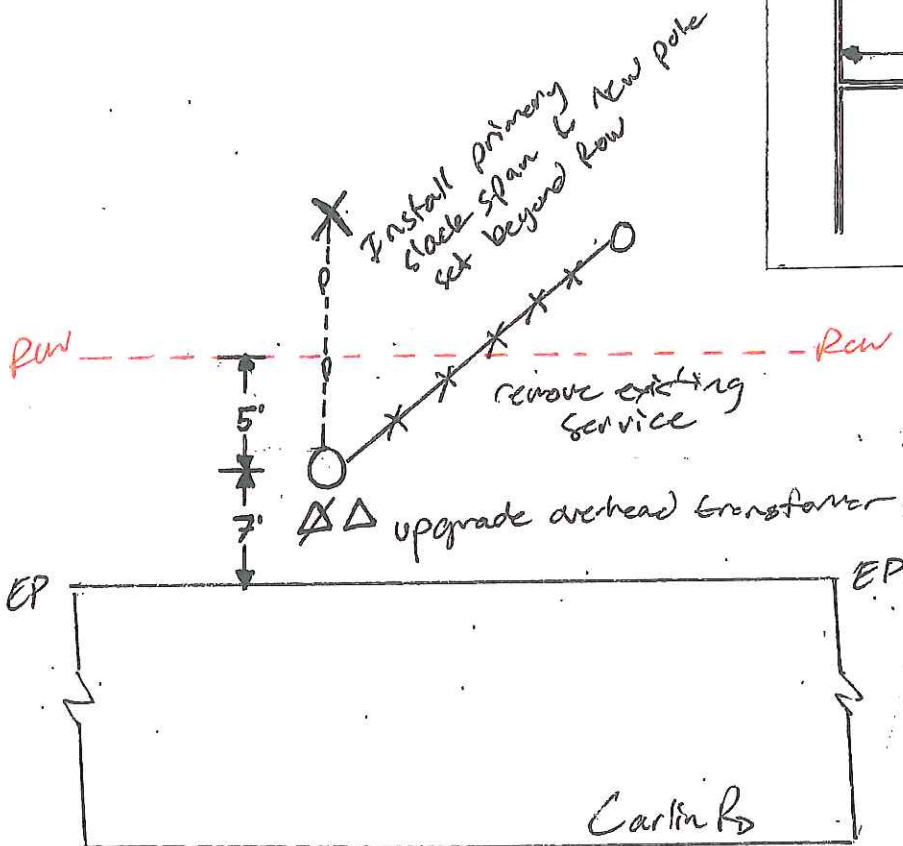 Install primary
slack span & new pole
set beyond Row
P
P
Row
Row
5'
remove existing
service
7'
upgrade overhead transformer
EP
EP
Carlin RD